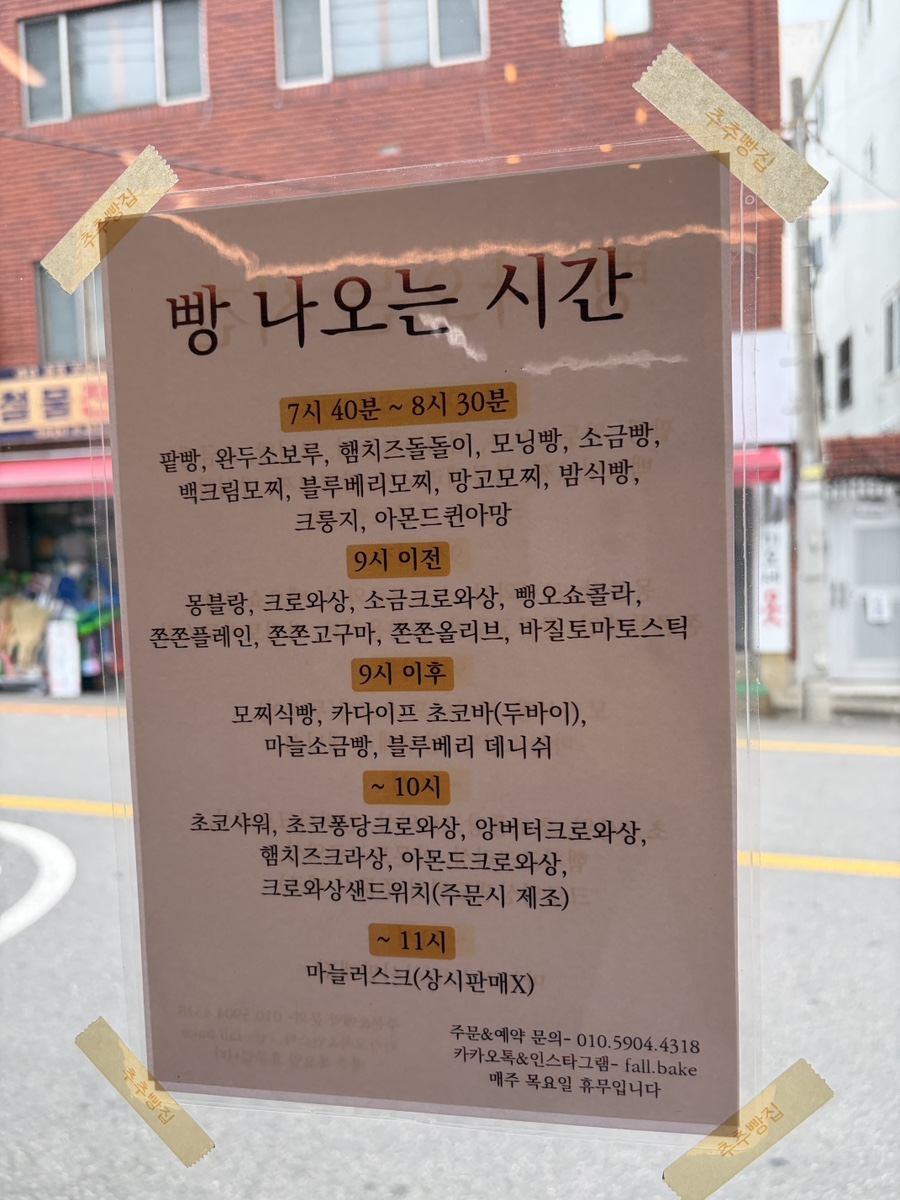 추추빵집
추추빵집
빵 나오는 시간
7시 40분 ~ 8시 30분
팥빵, 완두소보루, 햄치즈돌돌이, 모닝빵, 소금빵,
백크림모찌, 블루베리모찌, 망고모찌, 밤식빵,
크룽지, 아몬드퀸아망
9시 이전
몽블랑, 크로와상, 소금크로와상, 뺑오쇼콜라,
쫀쫀플레인, 쫀쫀고구마, 쫀쫀올리브, 바질토마토스틱
9시 이후
모찌식빵, 카다이프 초코바(두바이),
마늘소금빵, 블루베리 데니쉬
~ 10시
초코샤워, 초코퐁당크로와상, 앙버터크로와상,
햄치즈크라상, 아몬드크로와상,
크로와상샌드위치(주문시 제조)
~ 11시
마늘러스크(상시판매X)
주문&예약 문의- 010.5904.4318
카카오톡&인스타그램- fall.bake
매주 목요일 휴무입니다
추추빵집
추추빵집
철물